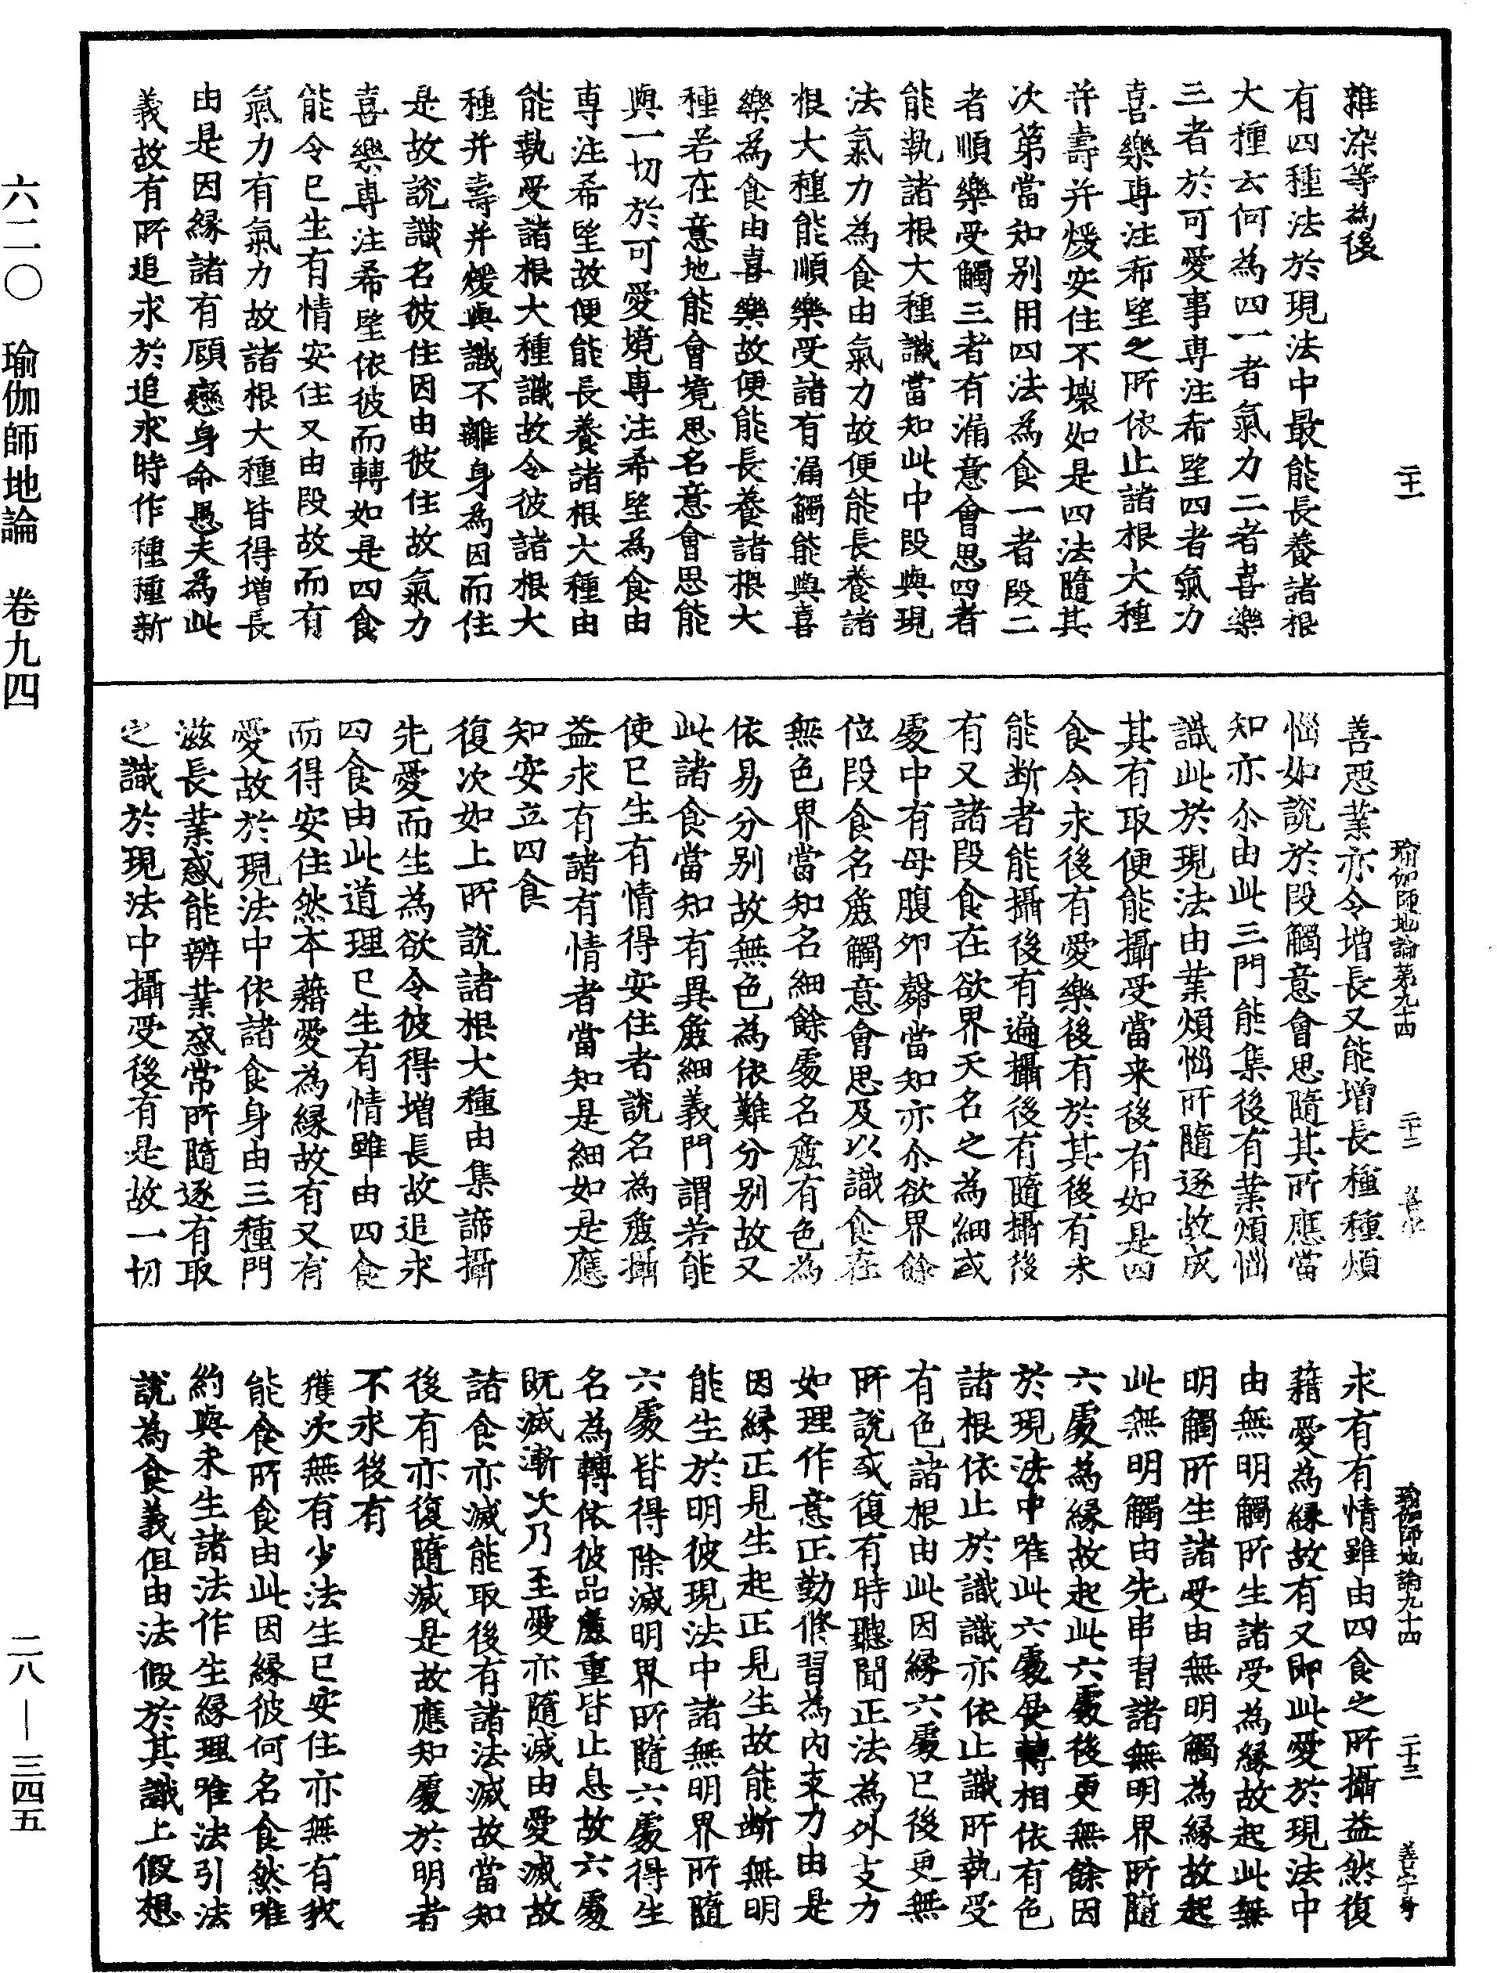 雜染等為後
有四種法於現法中最能長養諸根
大種云何為四一者氣力二者喜樂
三者於可愛事專注希望四者氣力
喜樂專注希望之所依止諸根大種
并壽并煖安住不壞如是四法隨其
次第當知別用四法為食一者段二
者順樂受觸三者有漏意會思四者
能執諸根大種識當知此中段與現
法氣力為食由氣力故便能長養諸
根大種能順樂受諸有漏觸能與喜
樂為食由喜樂故便能長養諸根大
種若在意地能會境思名意會思能
與一切於可愛境專注希望為食由
專注希望故便能長養諸根大種由
能執受諸根大種識故令彼諸根大
種并壽并煖與識不離身為因而住
是故說識名彼住因由彼住故氣力
喜樂專注希望依彼而轉如是四食
能令已生有情安住又由段故而有
氣力有氣力故諸根大種皆得增長
由是因緣諸有顧戀身命愚夫為此
義故有所追求於追求時作種種新
二十一
善惡業亦令增長又能增長種種煩
惱如說於段觸意會思隨其所應當
知亦尒由此三門能集後有業煩惱
識此於現法由業煩惱所隨逐故成
其有取便能攝受當來後有如是四
食令求後有愛樂後有於其後有未
能斷者能攝後有遍攝後有隨攝後
有又諸段食在欲界天名之為細或
處中有母腹卵㲉當知亦尒欲界餘
位段食名麁觸意會思及以識食在
無色界當知名細餘處名麁有色為
依易分別故無色為依難分別故又
此諸食當知有異麁細義門謂若能
使已生有情得安住者說名為麁攝
益求有諸有情者當知是細如是應
知安立四食
復次如上所說諸根大種由集諦攝
先愛而生為欲令彼得增長故追求
四食由此道理已生有情雖由四食
而得安住然本藉愛為緣故有又有
愛故於現法中依諸食身由三種門
滋長業惑能辦業惑常所隨逐有取
之識於現法中攝受後有是故一切
瑜伽師地論第九十四 二十二
求有有情雖由四食之所攝益然復
藉愛為緣故有又即此愛於現法中
由無明觸所生諸受為緣故起此無
明觸所生諸受由無明觸為緣故起
此無明觸由先串習諸無明界所隨
六處為緣故起此六處後更無餘因
於現法中唯此六處展轉相依有色
諸根依止於識識亦依止識所執受
有色諸根由此因緣六處已後更無
所說或復有時聽聞正法為外支力
如理作意正勤修習為內支力由是
因緣正見生起正見生故能斷無明
能生於明彼現法中諸無明界所隨
六處皆得除滅明界所隨六處得生
名為轉依彼品麁重皆止息故六處
既滅漸次乃至愛亦隨滅由愛滅故
諸食亦滅能取後有諸法滅故當知
後有亦復隨滅是故應知處於明者
不求後有
獲次無有少法生已安住亦無有我
能食所食由此因緣彼何名食然唯
約與未生諸法作生緣理唯法引法
說為食義但由法假於其識上假想
瑜伽師地論九十四 二十三
六二〇 瑜伽師地論 卷九四
二八—三四五